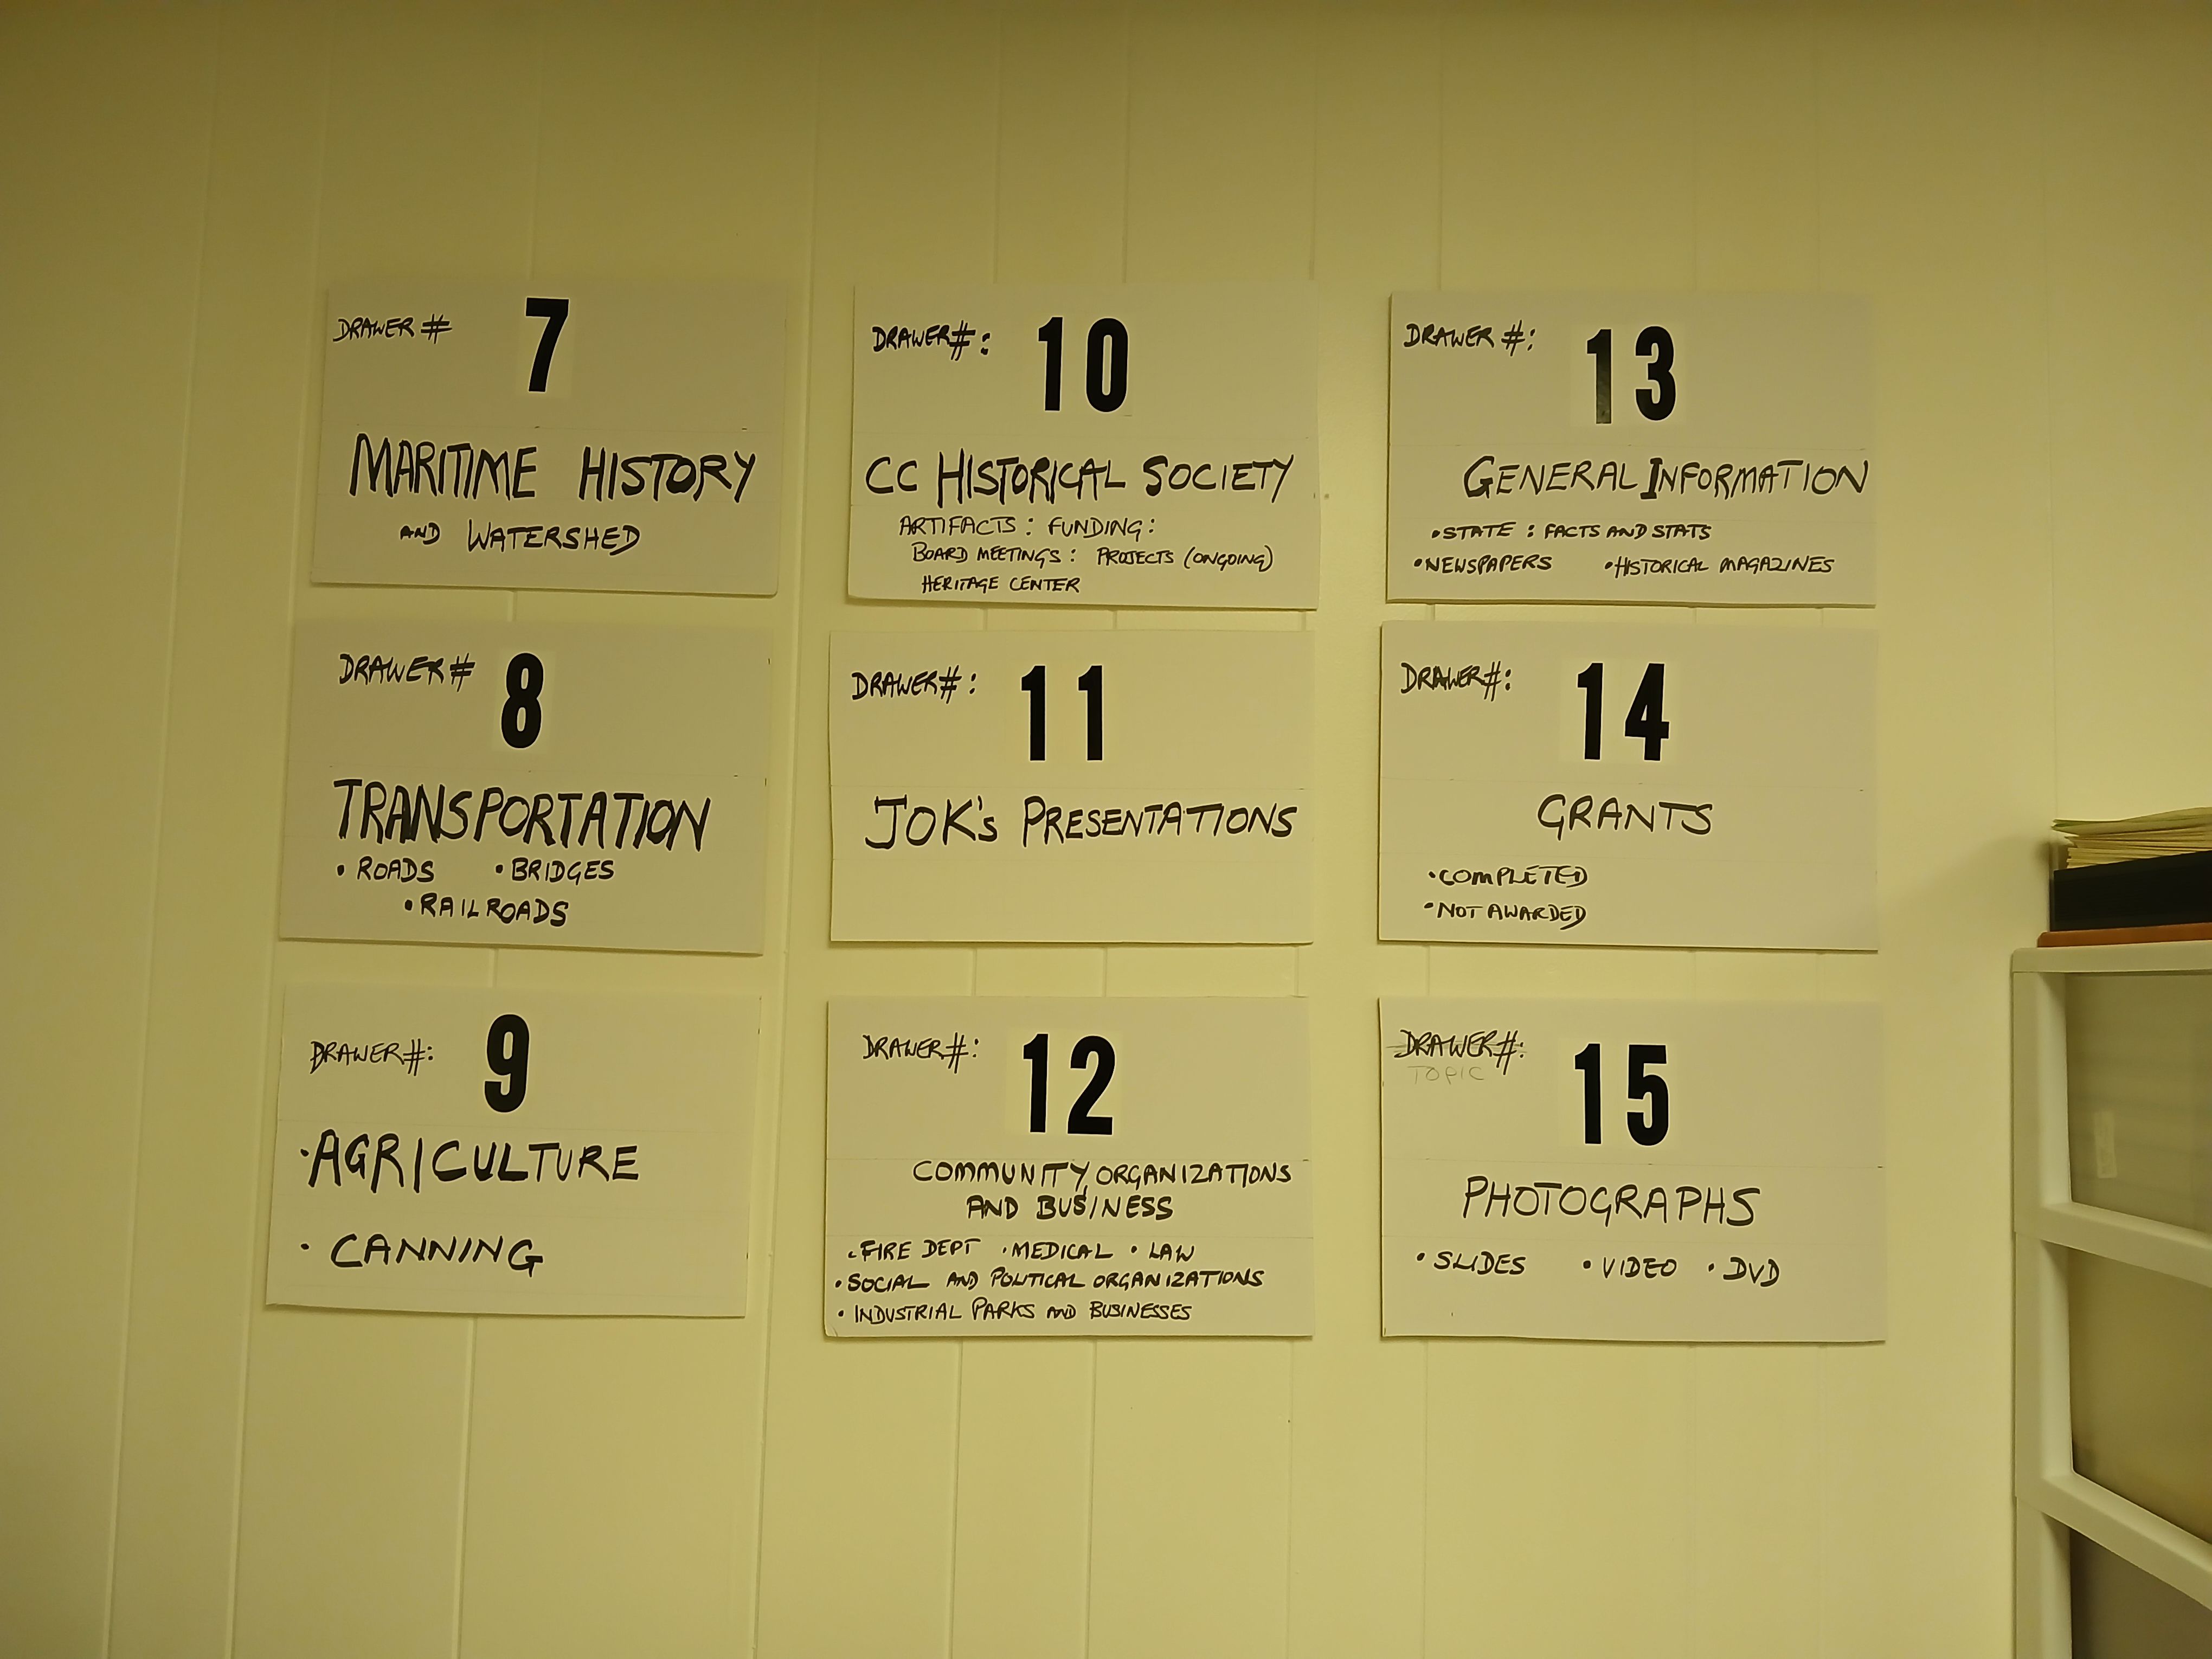 DRAWER # 7
MARITIME HISTORY
AND WATERSHED
DRAWER # 8
TRANSPORTATION
• ROADS • BRIDGES
• RAILROADS
DRAWER #: 9
• AGRICULTURE
• CANNING
DRAWER #: 10
CC HISTORICAL SOCIETY
ARTIFACTS : FUNDING :
BOARD MEETINGS : PROJECTS (ONGOING)
HERITAGE CENTER
DRAWER #: 11
JOK's PRESENTATIONS
DRAWER #: 12
COMMUNITY, ORGANIZATIONS
AND BUSINESS
• FIRE DEPT • MEDICAL • LAW
• SOCIAL AND POLITICAL ORGANIZATIONS
• INDUSTRIAL PARKS AND BUSINESSES
DRAWER #: 13
GENERAL INFORMATION
• STATE : FACTS AND STATS
• NEWSPAPERS • HISTORICAL MAGAZINES
DRAWER #: 14
GRANTS
• COMPLETED
• NOT AWARDED
DRAWER #: 15
TOPIC
PHOTOGRAPHS
• SLIDES • VIDEO • DVD